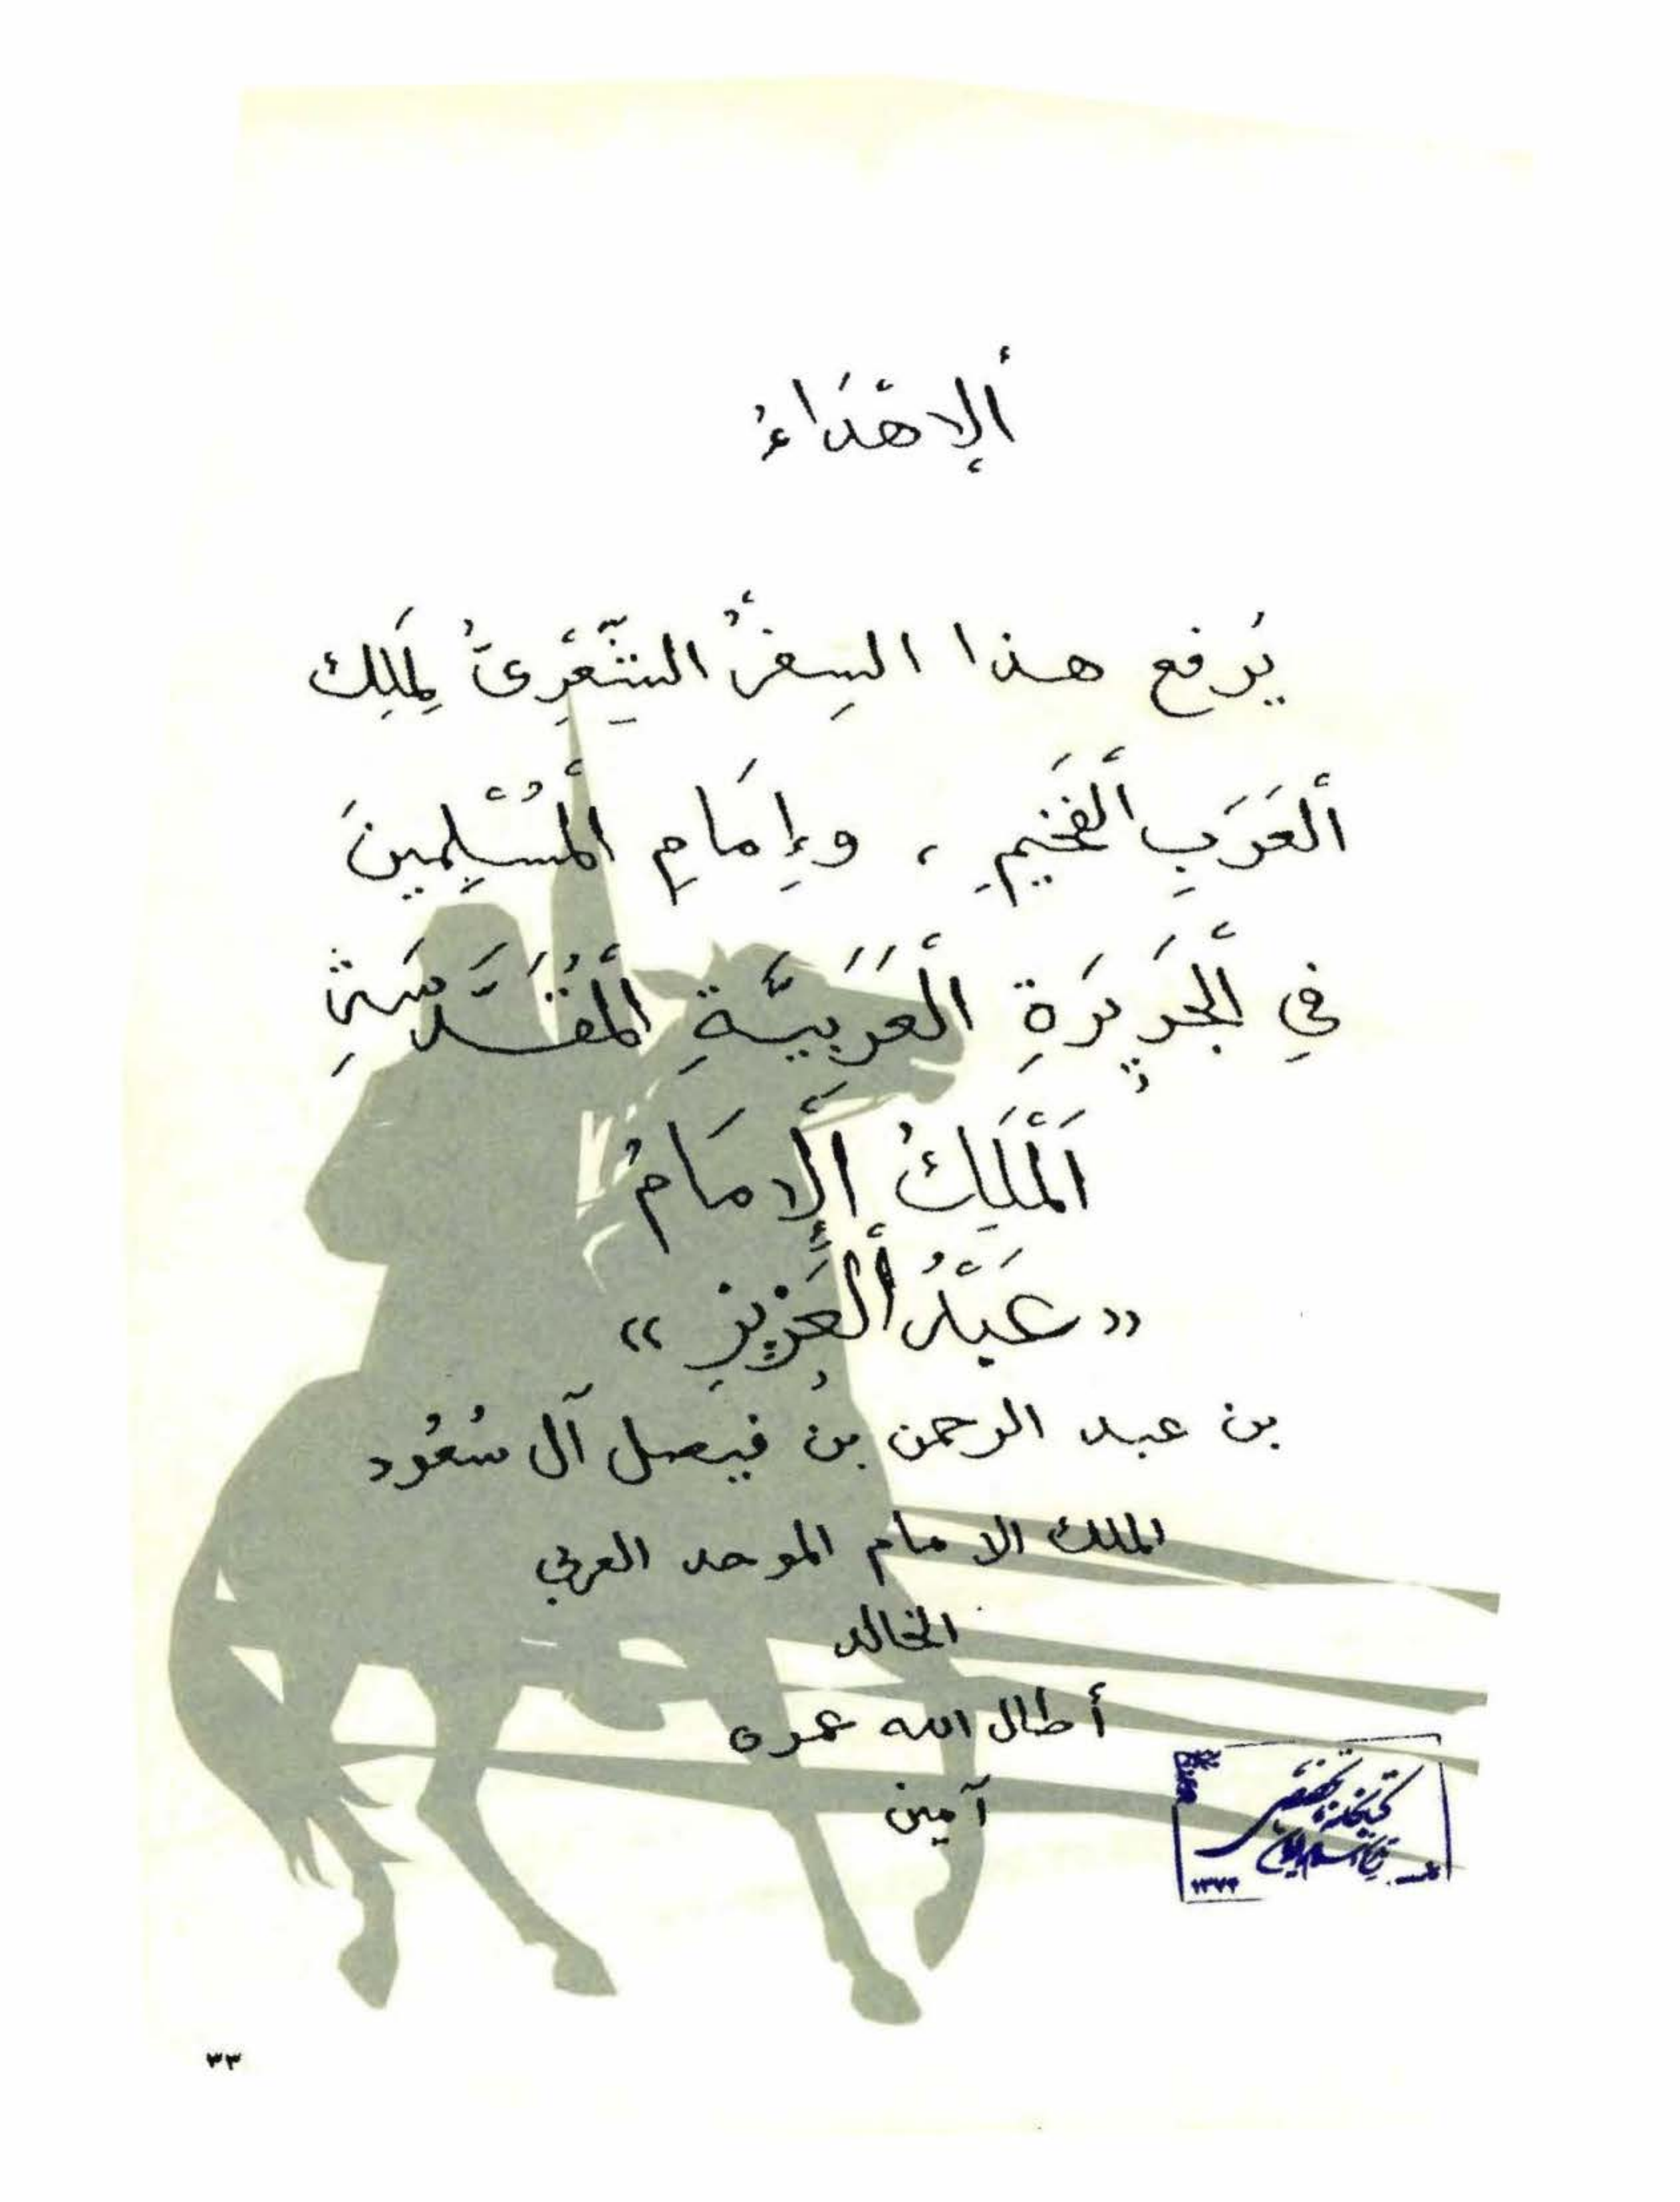 ألإهْدَاءُ
يُرفع هذا السِفرُ الشِّعْرِىُّ لِمَلِك
ألعَرَبِ ألفَخيمِ ، وإِمَامِ ألْمُسْلِمينَ
في ألجَزِيرَةِ ألْعَرَبيَّةِ ألْمُقَدَّسَةِ
اَلْمَلِكُ اَلإِمَامُ
«عَبْدُ ألعَزِيزِ»
بن عبد الرحمن بنُ فيصل آل سُعُود
الملك الامام الموحد العربي
الخالد
أطال الله عمره
آمين
١٣٧٣
٣٣